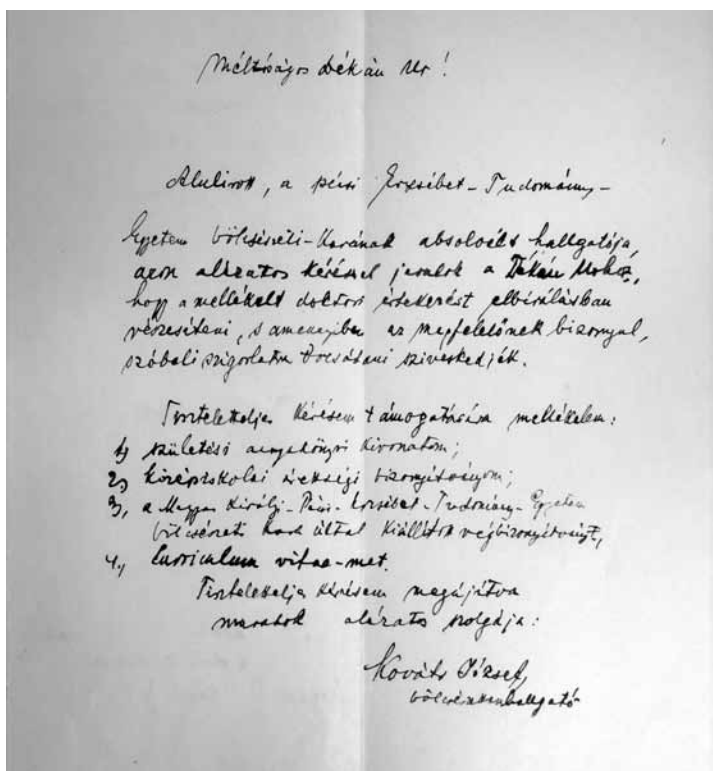 Méltóságos Dékán Úr!
Alulirott, a pécsi Erzsébet-Tudomány-
Egyetem bölcsészeti-Karának absolvált hallgatója,
azon alázatos kéréssel járulok a Dékán Urhoz,
hogy a mellékelt doktori értekezést elbírálásban
részesíteni, s amennyiben az megfelelőnek bizonyul,
szóbeli szigorlatra bocsátani sziveskedjék.
Tiszteletteljes kérésem támogatására mellékelem:
1, születési anyakönyvi kivonatom;
2, középiskolai érettségi bizonyítványom;
3, a Magyar Királyi-Pécsi-Erzsébet-Tudomány-Egyetem
bölcsészeti kara által kiállított végbizonyítványt,
4., Curriculum vitae-met.
Tiszteletteljes kérésem megújítva
maradok alázatos szolgája:
Kováts József,
bölcsészethallgató